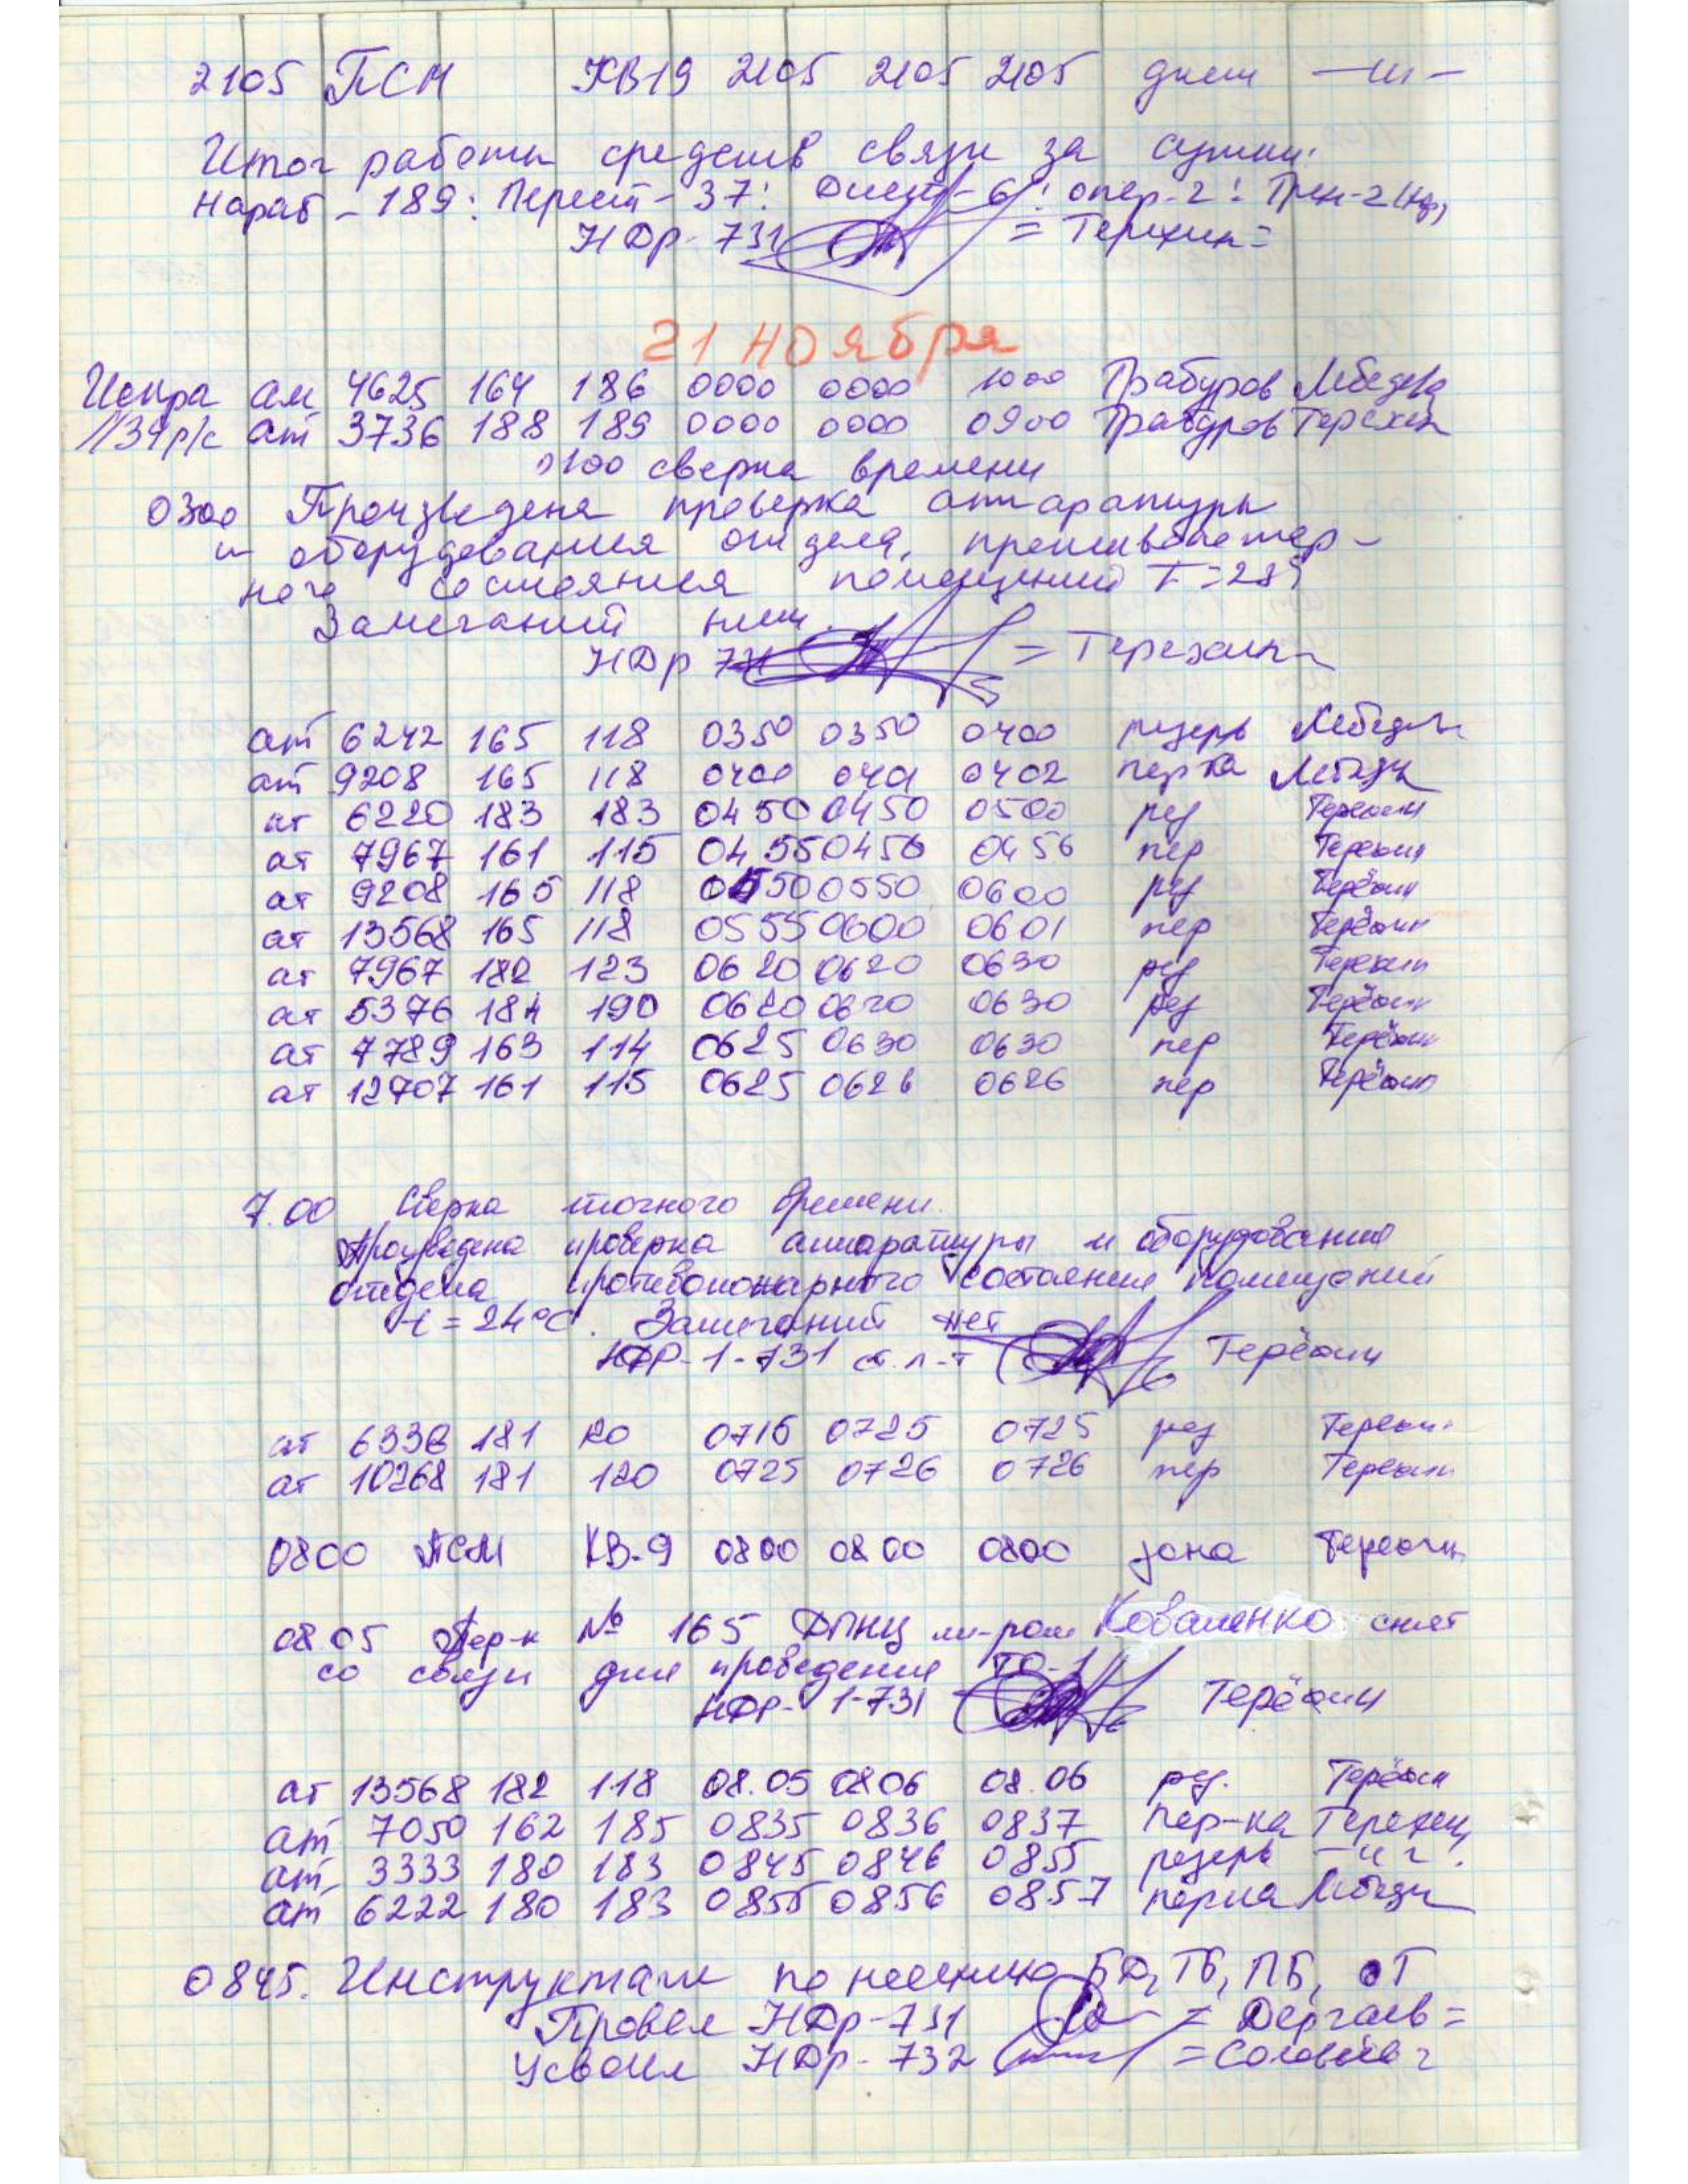 2105 ПСМ КВ19 2105 2105 2105 днем —〃—
Итог работы средств связи за сутки:
Нараб - 189: Перест - 37: 6: опер-2: Трен-2
НДр-731 = Терёхин =
21 ноября
Искра ам 4625 164 186 0000 0000 1000 Трабуров Лебедев
ат 3736 188 189 0000 0000 0900 Трабуров Терёхин
сверка времени
0300 Произведена проверка аппаратуры
и оборудования отдела, противопожар-
ного состояния помещений T=28°
Замечаний нет.
НДр 731 = Терёхин =
ат 6242 165 118 0350 0350 0400 резерв Лебедев
ат 9208 165 118 0400 0401 0402 пер-ка Лебедев
ат 6220 183 183 0450 0450 0500 рез Терёхин
ат 7967 161 115 0455 0456 0456 пер Терёхин
ат 9208 165 118 0550 0550 0600 рез Терёхин
ат 13568 165 118 0555 0600 0601 пер Терёхин
ат 7967 182 123 0620 0620 0630 рез Терёхин
ат 5376 184 190 0620 0620 0630 рез Терёхин
ат 7789 163 114 0625 0630 0630 пер Терёхин
ат 12707 161 115 0625 0626 0626 пер Терёхин
7.00 Сверка точного времени.
Произведена проверка аппаратуры и оборудования
отдела противопожарного состояния помещений
t = 24°C. Замечаний нет
НДР-1-731 ст. л-т Терёхин
ат 6336 181 120 0715 0725 0725 рез Терёхин
ат 10268 181 120 0725 0726 0726 пер Терёхин
0800 ПСМ КВ-9 0800 0800 0800 зона Терёхин
0805 Пер-к № 165 ДПНЦ м-ром Коваленко снят
со связи для проведения ТО-1
НДР-1-731 Терёхин
ат 13568 182 118 08.05 0806 08.06 рез. Терёхин
ат 7050 162 185 0835 0836 0837 пер-ка Терёхин
ат 3333 180 183 0845 0846 0855 резерв —〃—
ат 6222 180 183 0855 0856 0857 пер-ка Лебедев
0845. Инструктаж по несению БД, ТБ, ПБ, ОТ
Провёл НДр-731 = Дергаев =
Усвоил НДр-732 = Соловьёв =